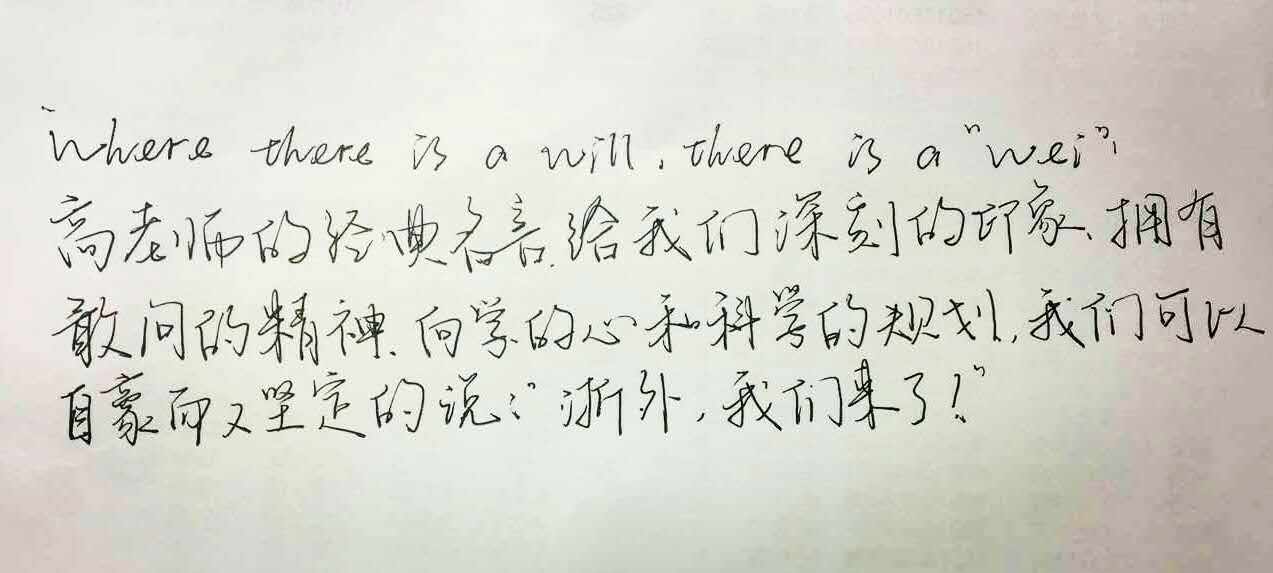 "Where there is a will, there is a "wei",
高老师的经典名言给我们深刻的印象、拥有
敢问的精神、向学的心和科学的规划,我们可以
自豪而又坚定的说:"浙外,我们来了!"